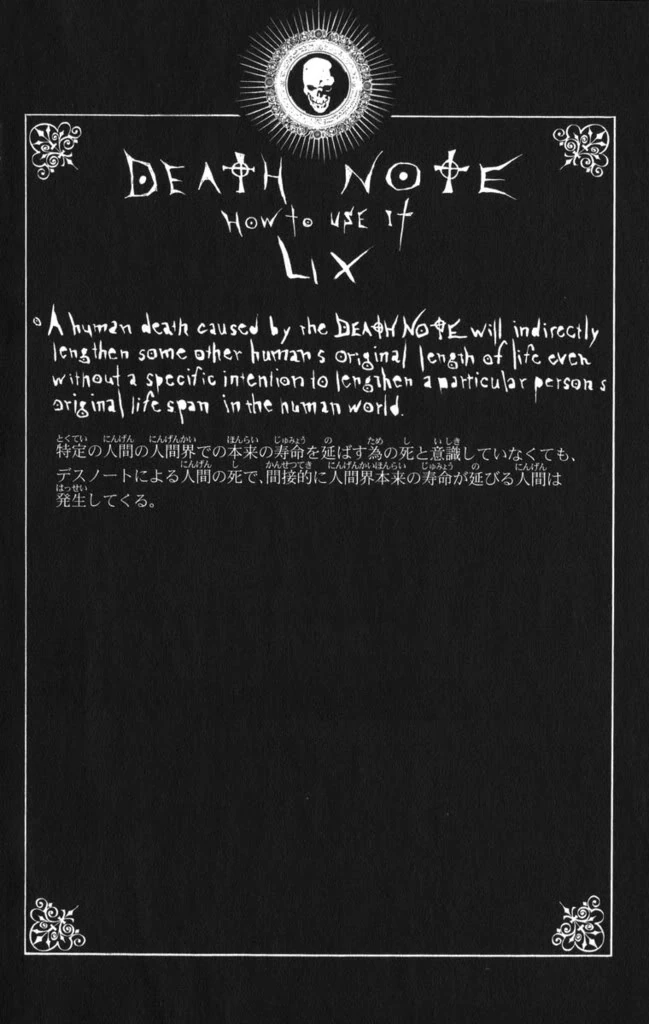 DEATH NOTE
HOW to USE It
LIX
A human death caused by the DEATH NOTE will indirectly
lengthen some other human s original length of life even
without a specific intention to lengthen a particular person s
original life span in the human world.
とくてい にんげん にんげんかい ほんらい じゅみょう の ため し いしき
特定の人間の人間界での本来の寿命を延ばす為の死と意識していなくても、
にんげん し かんせつてき にんげんかいほんらい じゅみょう の にんげん
デスノートによる人間の死で、間接的に人間界本来の寿命が延びる人間は
はっせい
発生してくる。